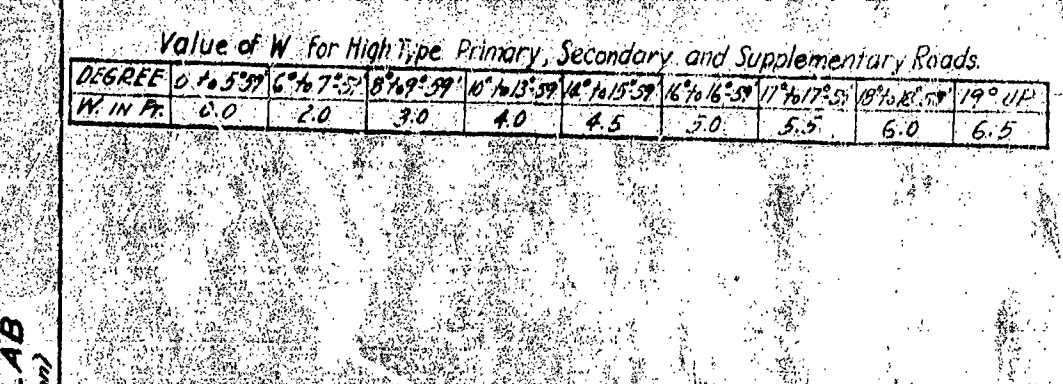 Value of W for High Type Primary, Secondary and Supplementary Roads.
DEGREE 0 to 5°59' 6° to 7°59' 8° to 9°59' 10° to 13°59' 14° to 15°59' 16° to 16°59' 17° to 17°59' 18° to 18°59' 19° UP
W. IN FT. 0.0 2.0 3.0 4.0 4.5 5.0 5.5 6.0 6.5
AB